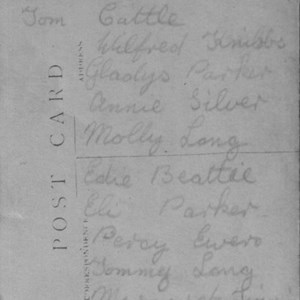 Tom Cattle
Wilfred
Gladys Parker
Annie Silver
Molly Long
Edie Beattie
Eli Parker
Percy
Tommy Long
POST CARD
ADDRESS
CORRESPONDENCE